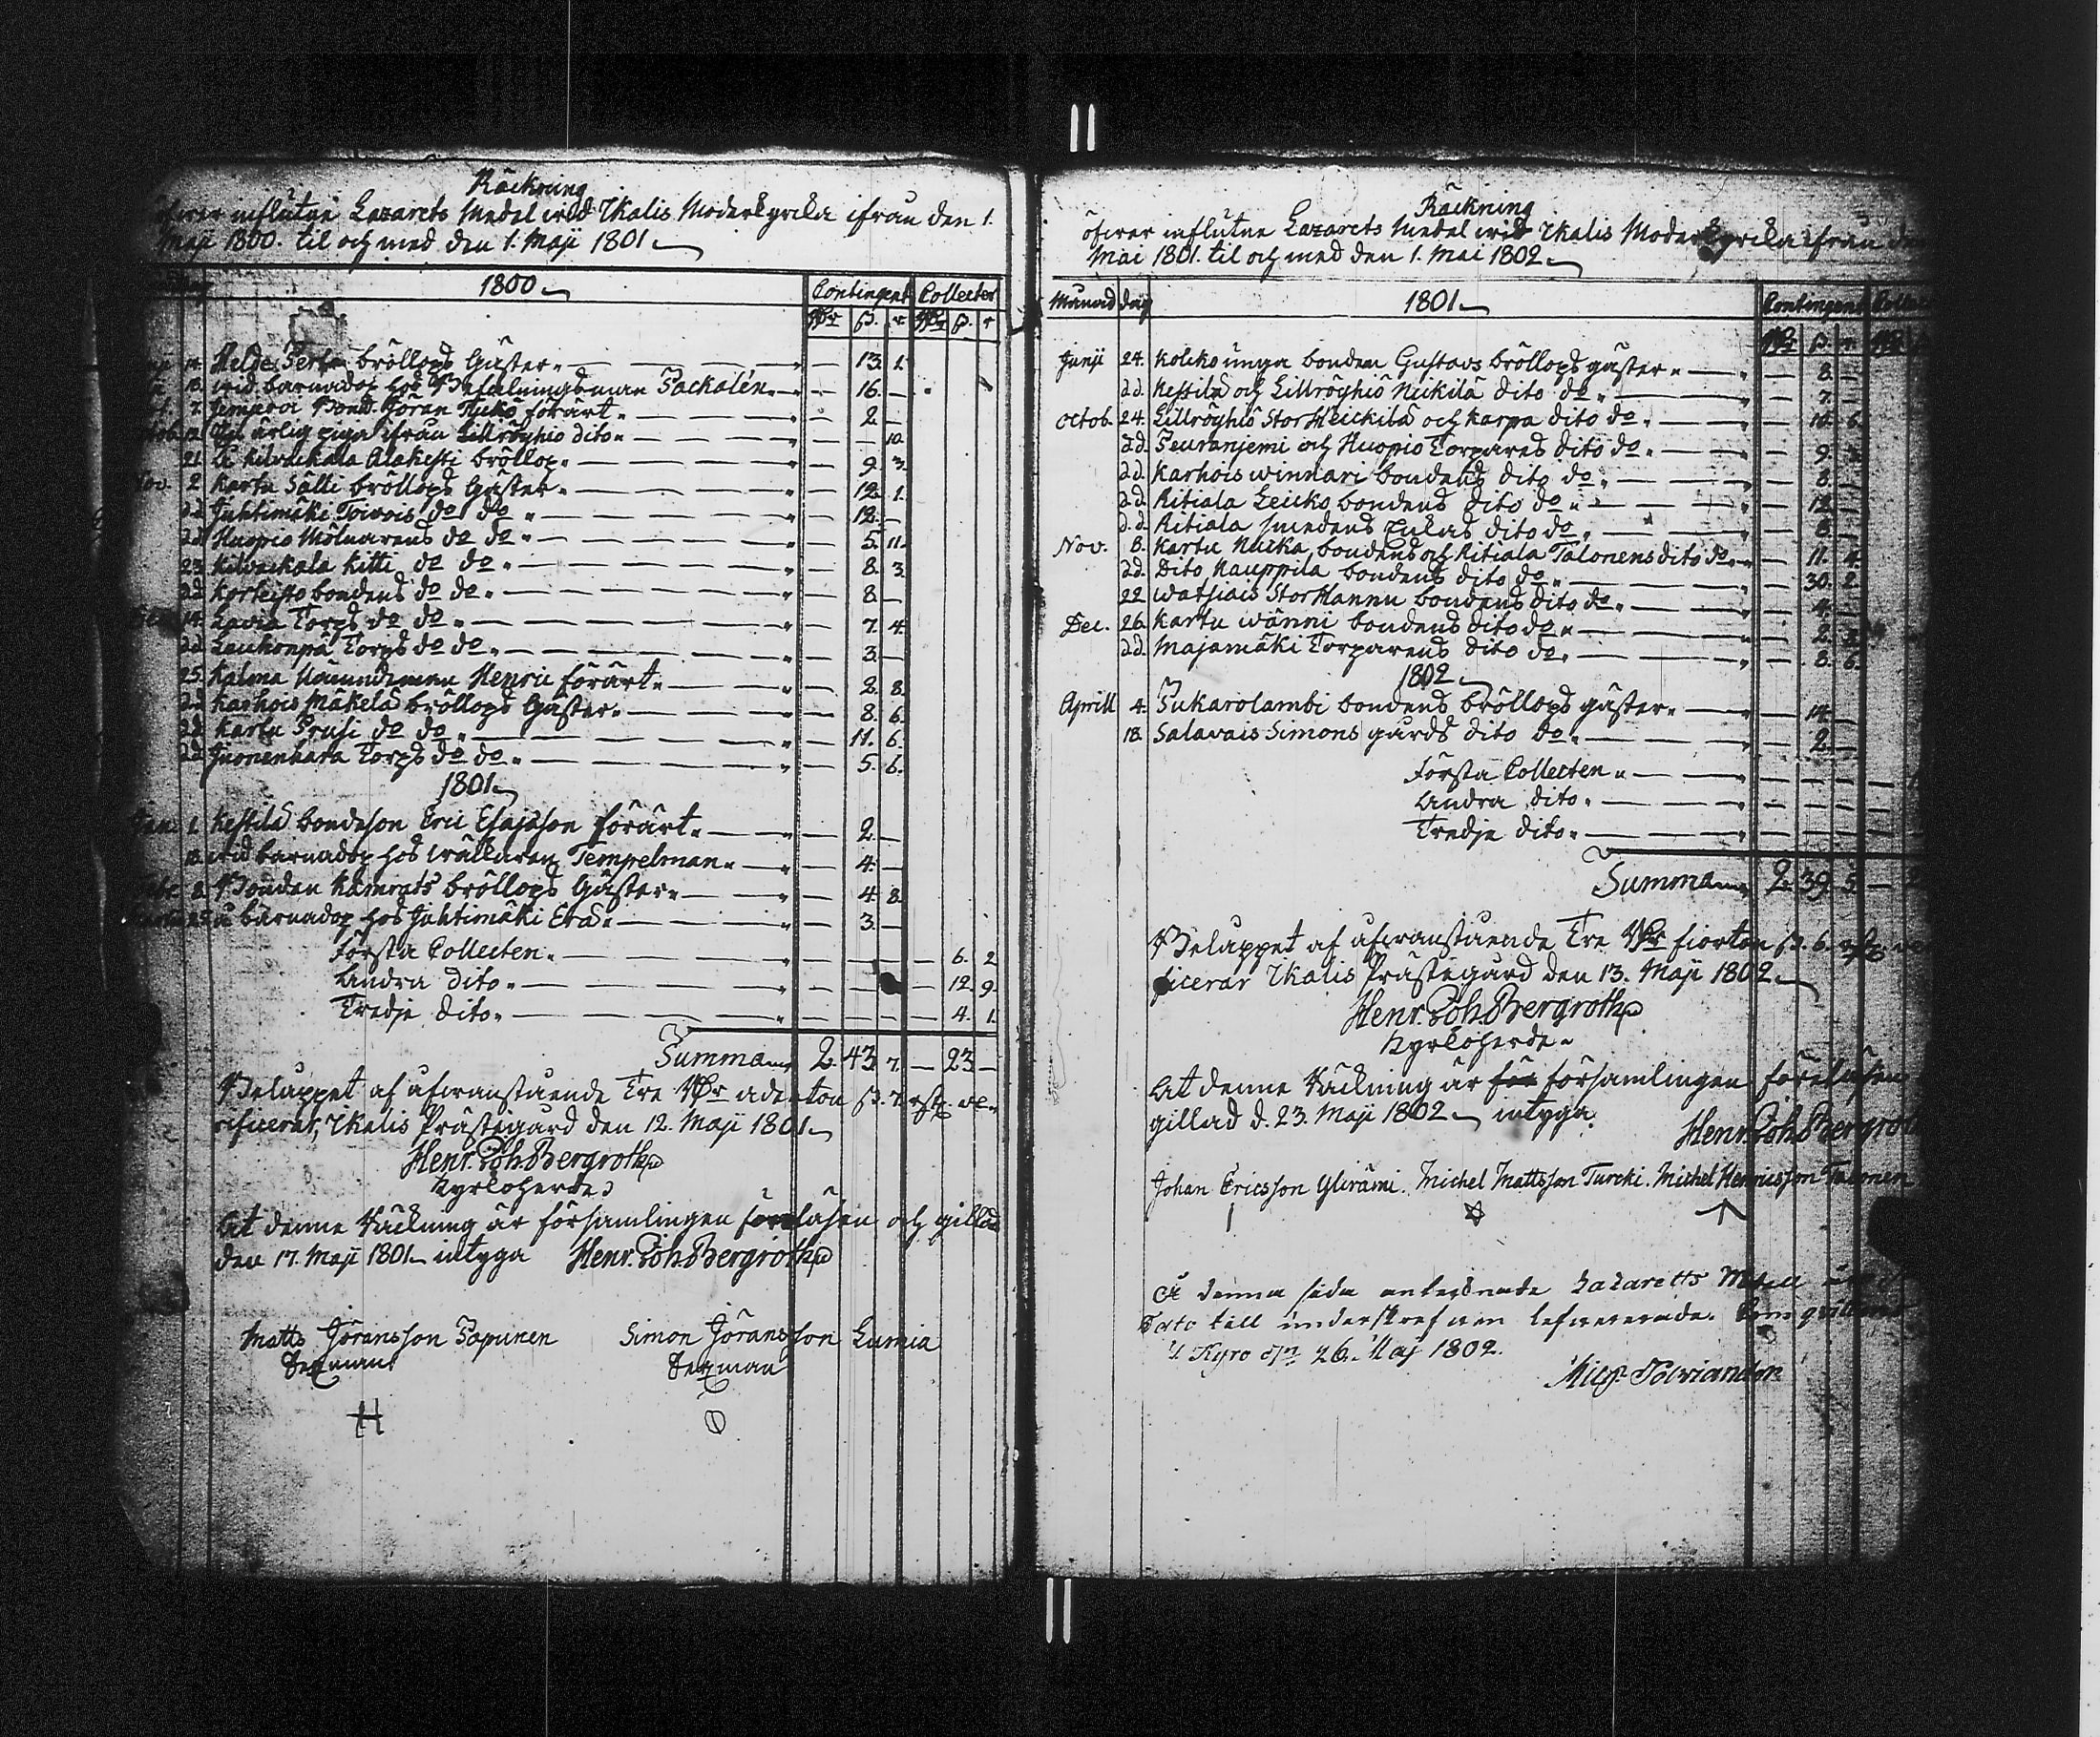 Räckning
öfwer influtne Lazarets Medel wid Ikalis Moderkyrka ifrån den 1.
Maji 1800. til och med den 1. Maji 1801.
1800 Contingent Collecter
Rdr ß. r Rdr ß. r
Heldo Perto bröllops Gäster 13. 1.
18. wid barnadop hos Befalningsman Packalén 16. —
7. Jemijärvi Bond. Göran förärt 2. —
12. Till ärlig piga ifrån Lillröyhiö dito 10.
21. Å Kilvackala Alakesti bröllop 9. 3.
Nov. 2. Kartu Sälli bröllops Gäster 12. 1.
dd Juhtimäki Toivois do do 12. —
dd Huopio Mölnarens do do 5. 11.
23. Kilvackala Kitti do do 8. 3.
dd Korteisto bondens do do 8. —
14. Lavia Torps do do 7. 4.
dd Leukonpä Torps do do 3. —
25. Kalma Nämndeman Henric förärt 2. 8.
dd Karhois Mäkelä bröllops Gäster 8. 6.
dd Kartu Prusi do do 11. 6.
dd Juonenhara Torps do do 5. 6.
1801
Jan. 1. Kestilä bondeson Eric Esajsson förärt 2. —
18. wid barnadop hos wällaren Tempelman 4. —
8. Bonden Kamrats bröllops Gäster 4. 8.
25. å barnadop hos Juhtimäki Erd 3. —
Första Collecten 6. 2
Andra dito 12. 9.
Tredje dito 4. 1.
Summa 2. 43. 7. — 23 —
Beluppet af ofwanstående Tre Rdr aderton ß. 7. rst. we-
rificerar, Ikalis Prästegård den 12. Maji 1801
Henr. Joh. Bergroth
Kyrkoherde
At denne Räckning är församlingen föreläsen och gillad
den 17. Maji 1801 intyga Henr. Joh. Bergroth
Matts Jöransson Papunen Simon Jöransson Lumia
Sexman Sexman
Räckning
öfwer influtne Lazarets Medel wid Ikalis Moderkyrka ifrån den
Mai 1801. til och med den 1. Mai 1802
Månad dag 1801 Contingent
Rdr ß. r.
Junji 24. Kolcko unga bonden Gustavs bröllops gäster 8. —
dd. Kestilä och Lillröyhiö Nickilä dito do 7. —
Octob. 24. Lillröyhiö Storheickilä och Karpa dito do 10. 6.
dd. Peuranjemi och Huopio Torpares dito do 9. 3.
dd. Karhois Winnari bondens dito do 8. —
dd. Kitiala Leicko bondens dito do 12. —
d.d. Kitiala smedens Lukas dito do 8. —
Nov. 8. Kartu Nucka bondens och Kitiala Talonens dito do 11. 4.
dd. Dito Kauppila bondens dito do 30. 2.
22. Watsiais StorHannu bondens dito do 4. —
Dec. 26. Kartu Wänni bondens dito do 2. 3.
dd. Majamäki Torparens dito do 8. 6.
1802
Aprill 4. Sukarolambi bondens bröllops gäster 14. —
18. Salavais Simons gårds dito do 2. —
Första Collecten
Andra dito
Tredje dito
Summa 2. 39. 5. —
Beluppet af ofwanstående Tre Rdr fiorton ß. 6. rst.
ficerar Ikalis Prästegård den 13. Maji 1802
Henr. Joh. Bergroth
Kyrkoherde
At denne Räckning är för församlingen föreläsen
gillad d. 23. Maji 1802 intyga.
Henr. Joh. Bergroth
Johan Ericsson Ylirämi. Michel Mattsson Turcki. Michel Henricsson Talonen
Å denna sida antecknade Lazaretts Medell
Dato till underskrefwen lefwererade. Som qvitteras
Kyro d. 26. Maj 1802.